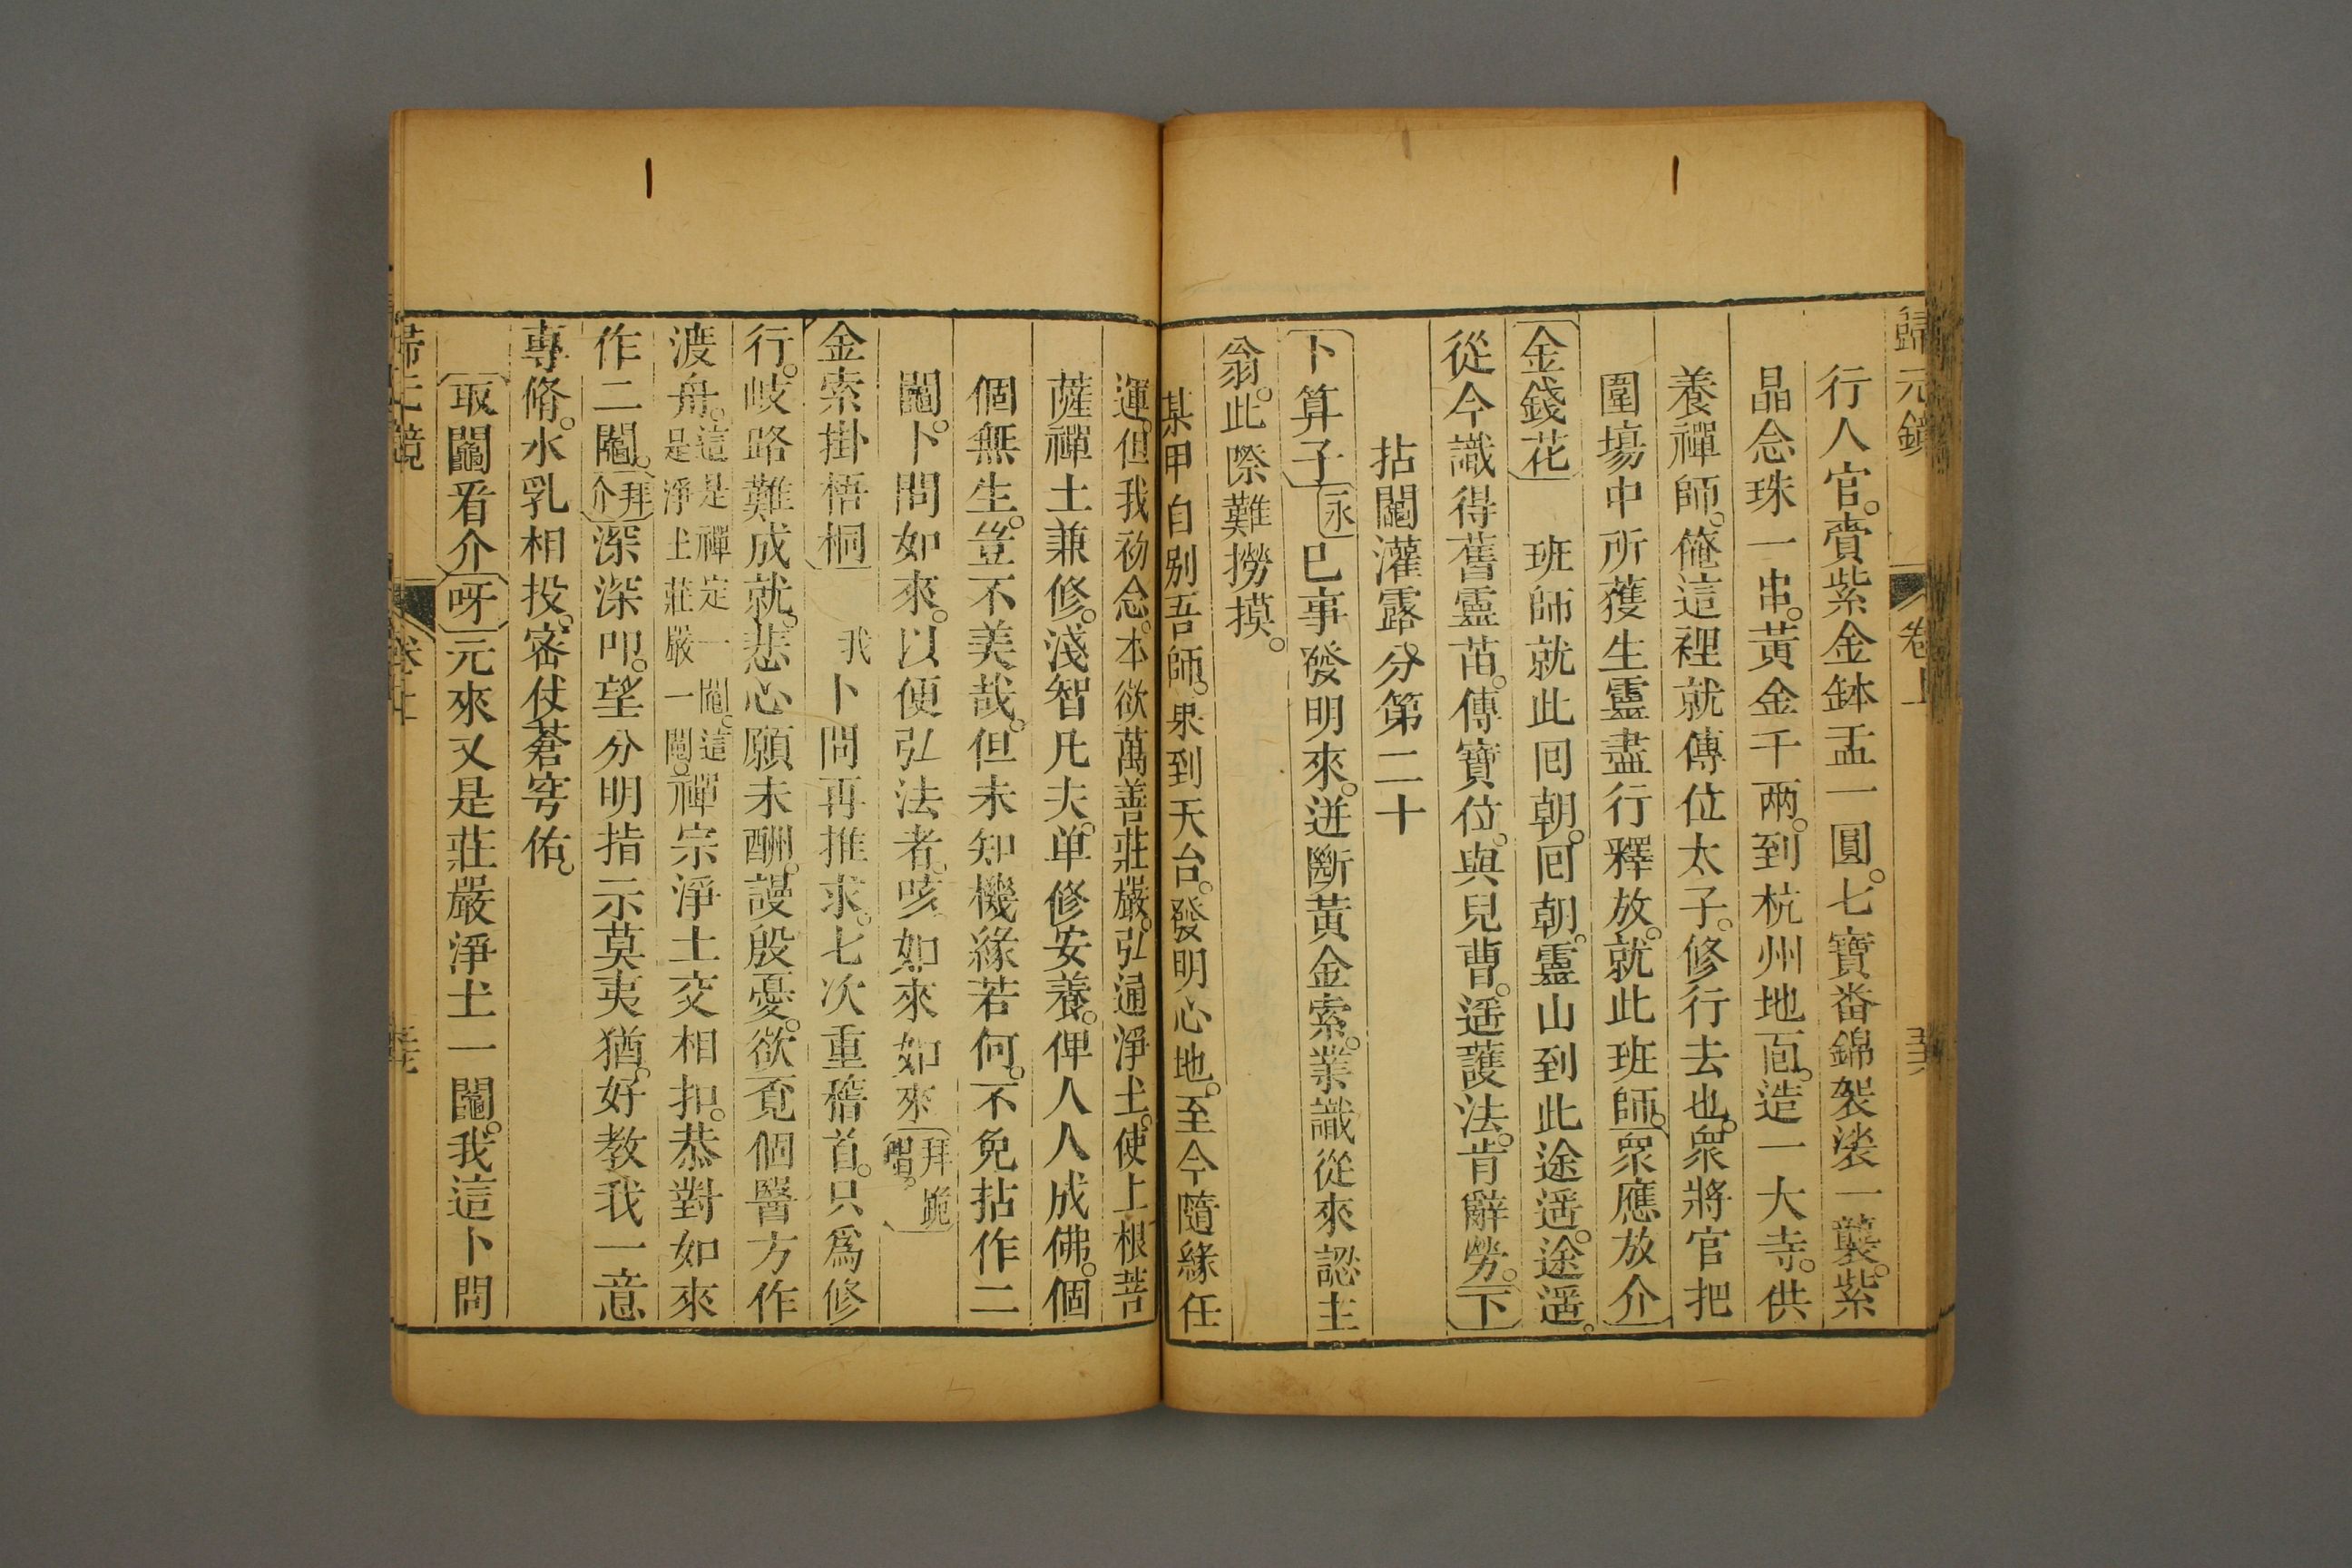 歸元鏡 卷上
行人官。賫紫金鉢盂一圓。七寶番錦袈裟一襲。紫
晶念珠一串。黃金千兩。到杭州地面。造一大寺。供
養禪師。俺這裡就傳位太子。修行去也。衆將官把
圍塲中所獲生靈盡行釋放。就此班師。衆應放介
金錢花 班師就此囘朝。囘朝。靈山到此途遥。途遥。
從今識得舊靈苗。傳寶位。與兒曹。遥護法。肯辭勞。下
拈鬮灌露分第二十
卜算子 永 巳事發明來。迸斷黃金索。業識從來認主
翁。此際難撈摸。
某甲自别吾師。來到天台。發明心地。至今隨緣任
運。但我初念。本欲萬善莊嚴。弘通淨土。使上根菩
薩禪土兼修。淺智凡夫。单修安養。俾人人成佛。個
個無生。豈不美哉。但未知機緣若何。不免拈作二
鬮。卜問如來。以便弘法者。咳如來如來 拜跪唱。
金索掛梧桐 我卜問再推求。七次重稽首。只爲修
行。岐路難成就。悲心願未酬。謾殷憂。欲覔個醫方作
渡舟。這是禪定一鬮。這是淨土莊嚴一鬮。禪宗淨土交相扣。恭對如來
作二鬮。拜介 深深叩。望分明指示莫夷猶。好教我一意
專脩。水乳相投。密仗蒼穹佑。
取鬮看介 呀 元來又是莊嚴淨土一鬮。我這卜問